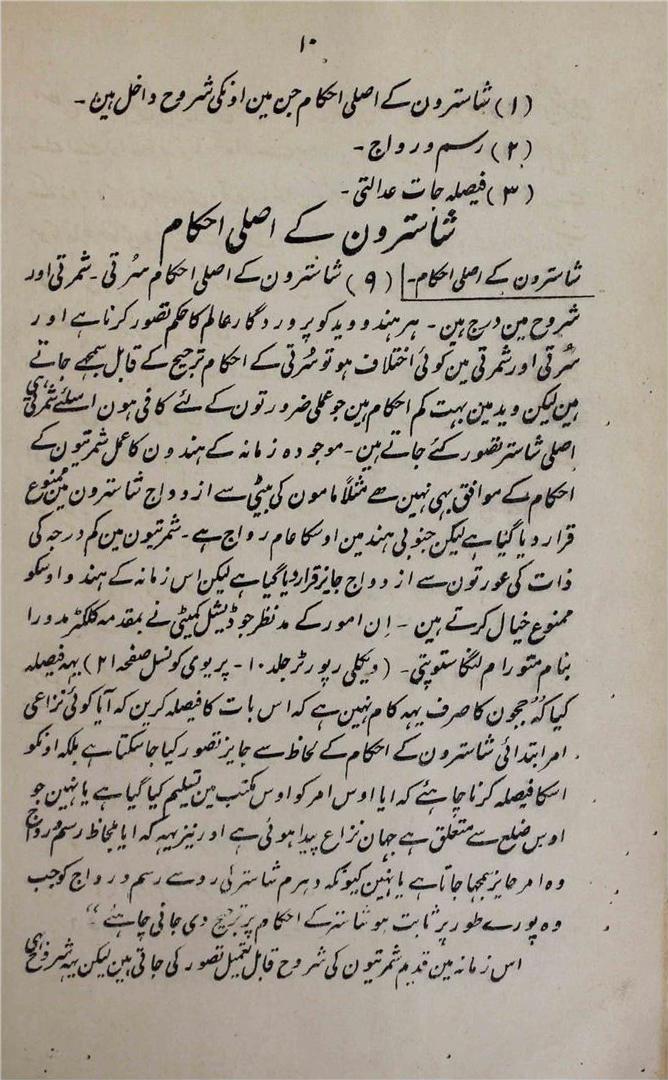 ۱۰
(۱) شاسترون کے اصلی احکام جن مین اونکی شروح داخل ہین۔
(۲) رسم و رواج۔
(۳) فیصلہ جات عدالتی۔
شاسترون کے اصلی احکام
شاسترون کے اصلی احکام۔ (۹) شاسترون کے اصلی احکام سُرتی۔ شمرتی اور
شروح مین درج ہین۔ ہر ہندو وید کو پروردگار عالم کا حکم تصور کرتا ہے اور
سُرتی اور شمرتی مین کوئی اختلاف ہو تو سُرتی کے احکام ترجیح کے قابل سمجھے جاتے
ہین لیکن وید مین بہت کم احکام ہین جو عملی ضرورتون کے لئے کافی ہون اسلئے شمرتی ہی
اصلی شاستر تصور کئے جاتے ہین۔ موجودہ زمانہ کے ہندون کا عمل شمرتیون کے
احکام کے موافق بہی نہین ہے مثلاً مامون کی بیٹی سے ازدواج شاسترون مین ممنوع
قرار دیا گیا ہے لیکن جنوبی ہند مین اوسکا عام رواج ہے۔ شمرتیون مین کم درجہ کی
ذات کی عورتون سے ازدواج جایز قرار دیا گیا ہے لیکن اس زمانہ کے ہندو اوسکو
ممنوع خیال کرتے ہین۔ اِن امور کے مدنظر جوڈیشل کمیٹی نے بمقدمہ کلکٹر مدورا
بنام متورام لنگا ستوپتی۔ (ویکلی رپورٹر جلد ۱۰۔ پریوی کونسل صفحہ ۲۱) یہہ فیصلہ
کیا کہ ”ججون کا صرف یہہ کام نہین ہے کہ اس بات کا فیصلہ کرین کہ آیا کوئی نزاعی
امر ابتدائی شاسترون کے احکام کے لحاظ سے جایز تصور کیا جاسکتا ہے بلکہ اونکو
اسکا فیصلہ کرنا چاہئے کہ ایا اوس امر کو اوس مکتب مین تسلیم کیا گیا ہے یا نہین جو
اوس ضلع سے متعلق ہے جہان نزاع پیدا ہوئی ہے اور نیز یہہ کہ ایا بلحاظ رسم و رواج
وہ امر جایز سمجہا جاتا ہے یا نہین کیونکہ دہرم شاستر کی رو سے رسم و رواج کو جب
وہ پورے طور پر ثابت ہو شاستر کے احکام پر ترجیح دی جانی چاہئے“
اس زمانہ مین قدیم شمرتیون کی شروح قابل تعمیل تصور کی جاتی ہین لیکن یہہ شروح ہی